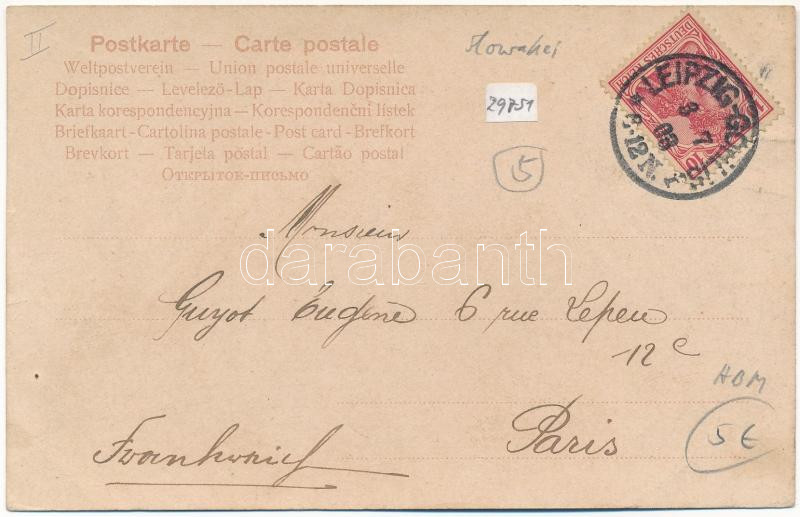 II
Postkarte — Carte postale
Weltpostverein — Union postale universelle
Dopisnice — Levelező-Lap — Karta Dopisnica
Karta korespondencyjna — Korespondenční lístek
Briefkaart - Cartolina postale - Post card - Brefkort
Brevkort — Tarjeta postal — Cartão postal
Открытое письмо
29851
5
DEUTSCHES REICH
10
LEIPZIG
3 7
03
8-12 N.
Monsieur
darabanth
Guyot Eugène 6 rue Lepeu
12e
Paris
Frankreich
HBM
5 €